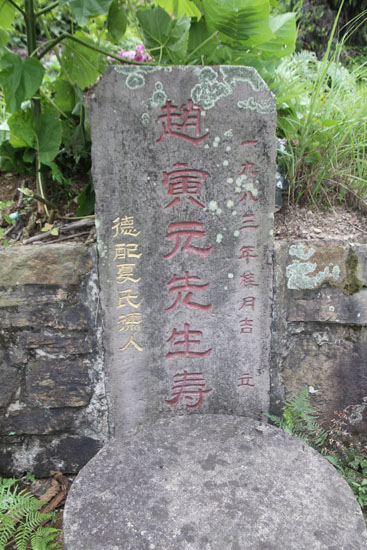 一九八二年叁月吉立
趙寅元先生寿
德配夏氏孺人